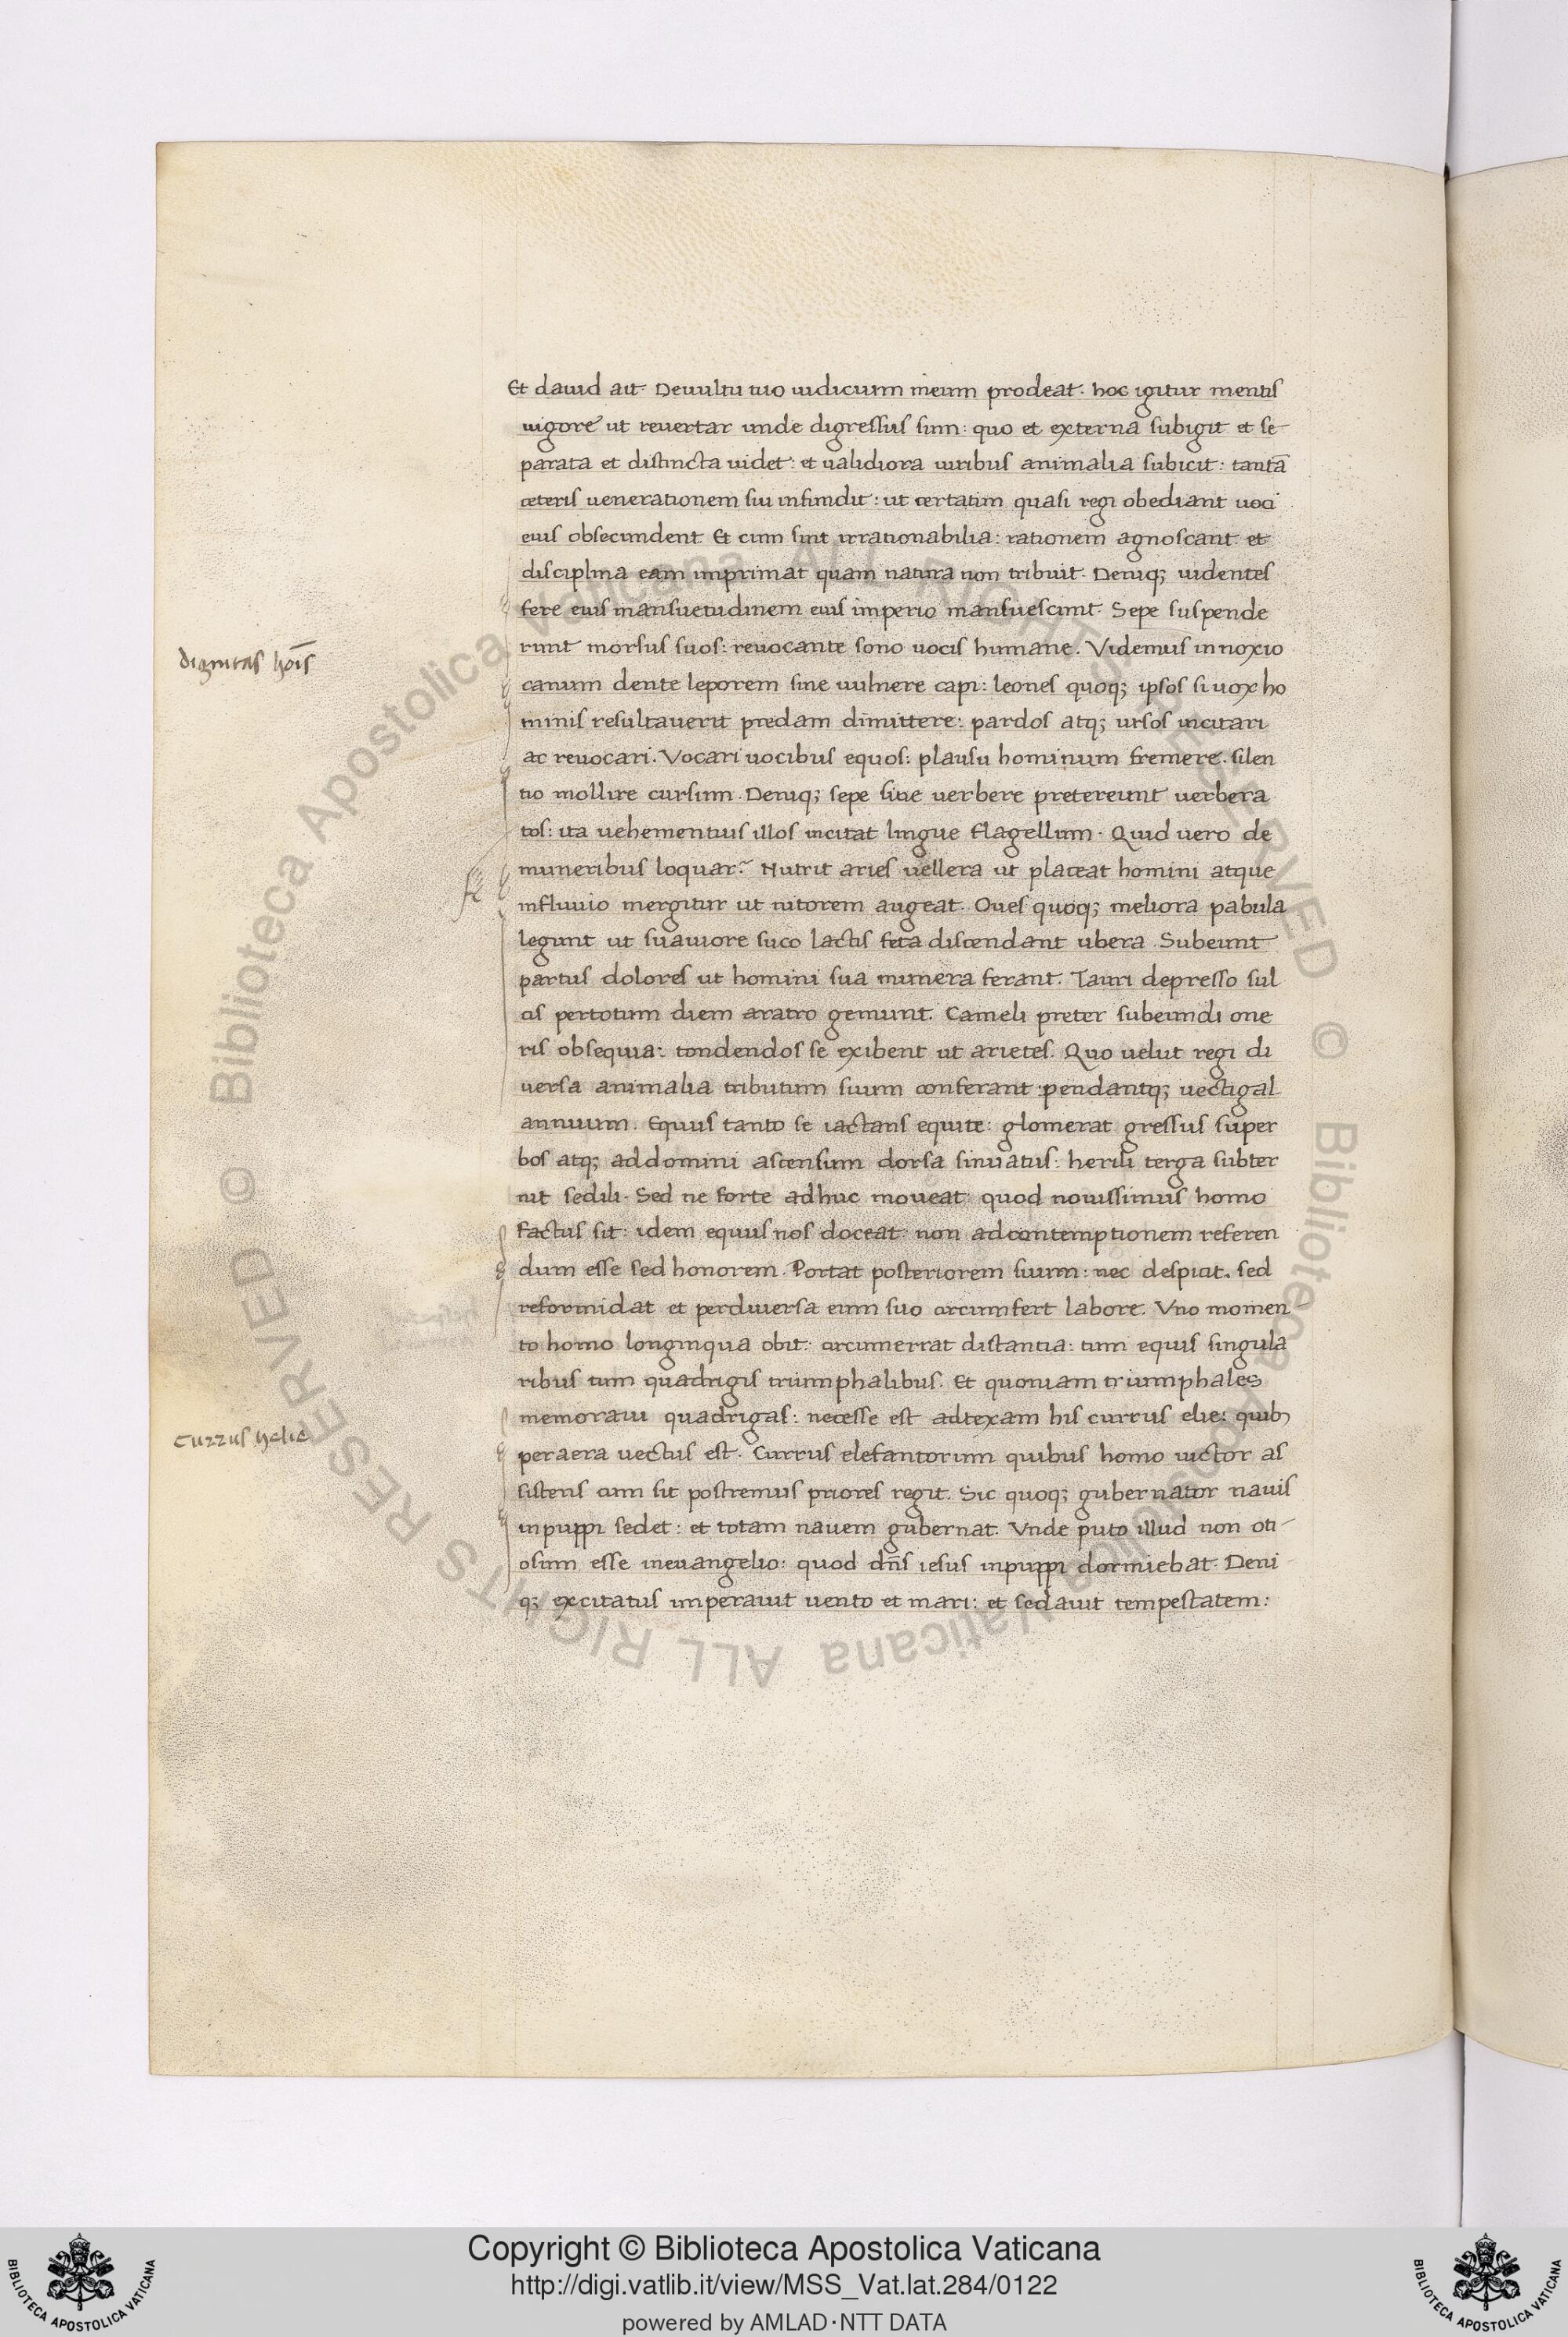 Et dauid ait. De uultu tuo iudicium meum prodeat. hoc igitur mentis
uigore ut reuertar unde digressus sum: quo et externa subigit et se-
parata et distincta uidet: et ualidiora uiribus animalia subicit: tantā
ceteris uenerationem sui infundit: ut certatim quasi regi obediant uoci
eius obsecundent. Et cum sint irrationabilia: rationem agnoscant et
disciplina eam imprimat quam natura non tribuit. Deniq; uidentes
fere eius mansuetudinem eius imperio mansuescunt. Sepe suspende
runt morsus suos: reuocante sono uocis humane. Videmus innoxio
dignitas hoīs
canum dente leporem sine uulnere capi: leones quoq; ipsos si uox ho
minis resultauerit predam dimittere: pardos atq; ursos incitari
ac reuocari. Vocari uocibus equos: plausu hominum fremere. silen
tio mollire cursum. Deniq; sepe sine uerbere pretereunt uerbera
tos: ita uehementius illos incitat lingue flagellum. Quid uero de
muneribus loquar? Nutrit aries uellera ut placeat homini atque
influuio mergitur ut nitorem augeat. Oues quoq; meliora pabula
legunt ut suauiore suco lactis feta discendant ubera. Subeunt
partus dolores ut homini sua munera ferant. Tauri depresso sul
cis pertotum diem aratro gemunt. Cameli preter subeundi one
ris obsequia: tondendos se exibent ut arietes. Quo uelut regi di
uersa animalia tributum suum conferant: pendantq; uectigal
annuum. Equus tanto se iactans equite: glomerat gressus super
bos atq; addomini ascensum dorsa sinuatus: herili terga subter
nit sedili. Sed ne forte adhuc moueat: quod nouissimus homo
factus sit: idem equus nos doceat: non adcontemptionem referen
dum esse sed honorem. Portat posteriorem suum: nec despicit. sed
reformidat et perdiuersa eum suo circumfert labore. Vno momen
to homo longinqua obit: circumerrat distantia: tum equis singula
ribus tum quadrigis triumphalibus. Et quoniam triumphales
memoraui quadrigas: necesse est adtexam his currus elie: quib;
currus helie
peraera uectus est. Currus elefantorum quibus homo uictor as
sistens cum sit postremus priores regit. Sic quoq; gubernator nauis
inpuppi sedet: et totam nauem gubernat. Vnde puto illud non oti-
osum esse ineuangelio: quod dn̄s iesus inpuppi dormiebat. Deni-
q; excitatus imperauit uento et mari: et sedauit tempestatem:
© Biblioteca Apostolica Vaticana ALL RIGHTS RESERVED © Biblioteca Apostolica Vaticana ALL RIGHTS RESERVED
Copyright © Biblioteca Apostolica Vaticana
http://digi.vatlib.it/view/MSS_Vat.lat.284/0122
powered by AMLAD·NTT DATA
BIBLIOTECA APOSTOLICA VATICANA
BIBLIOTECA APOSTOLICA VATICANA